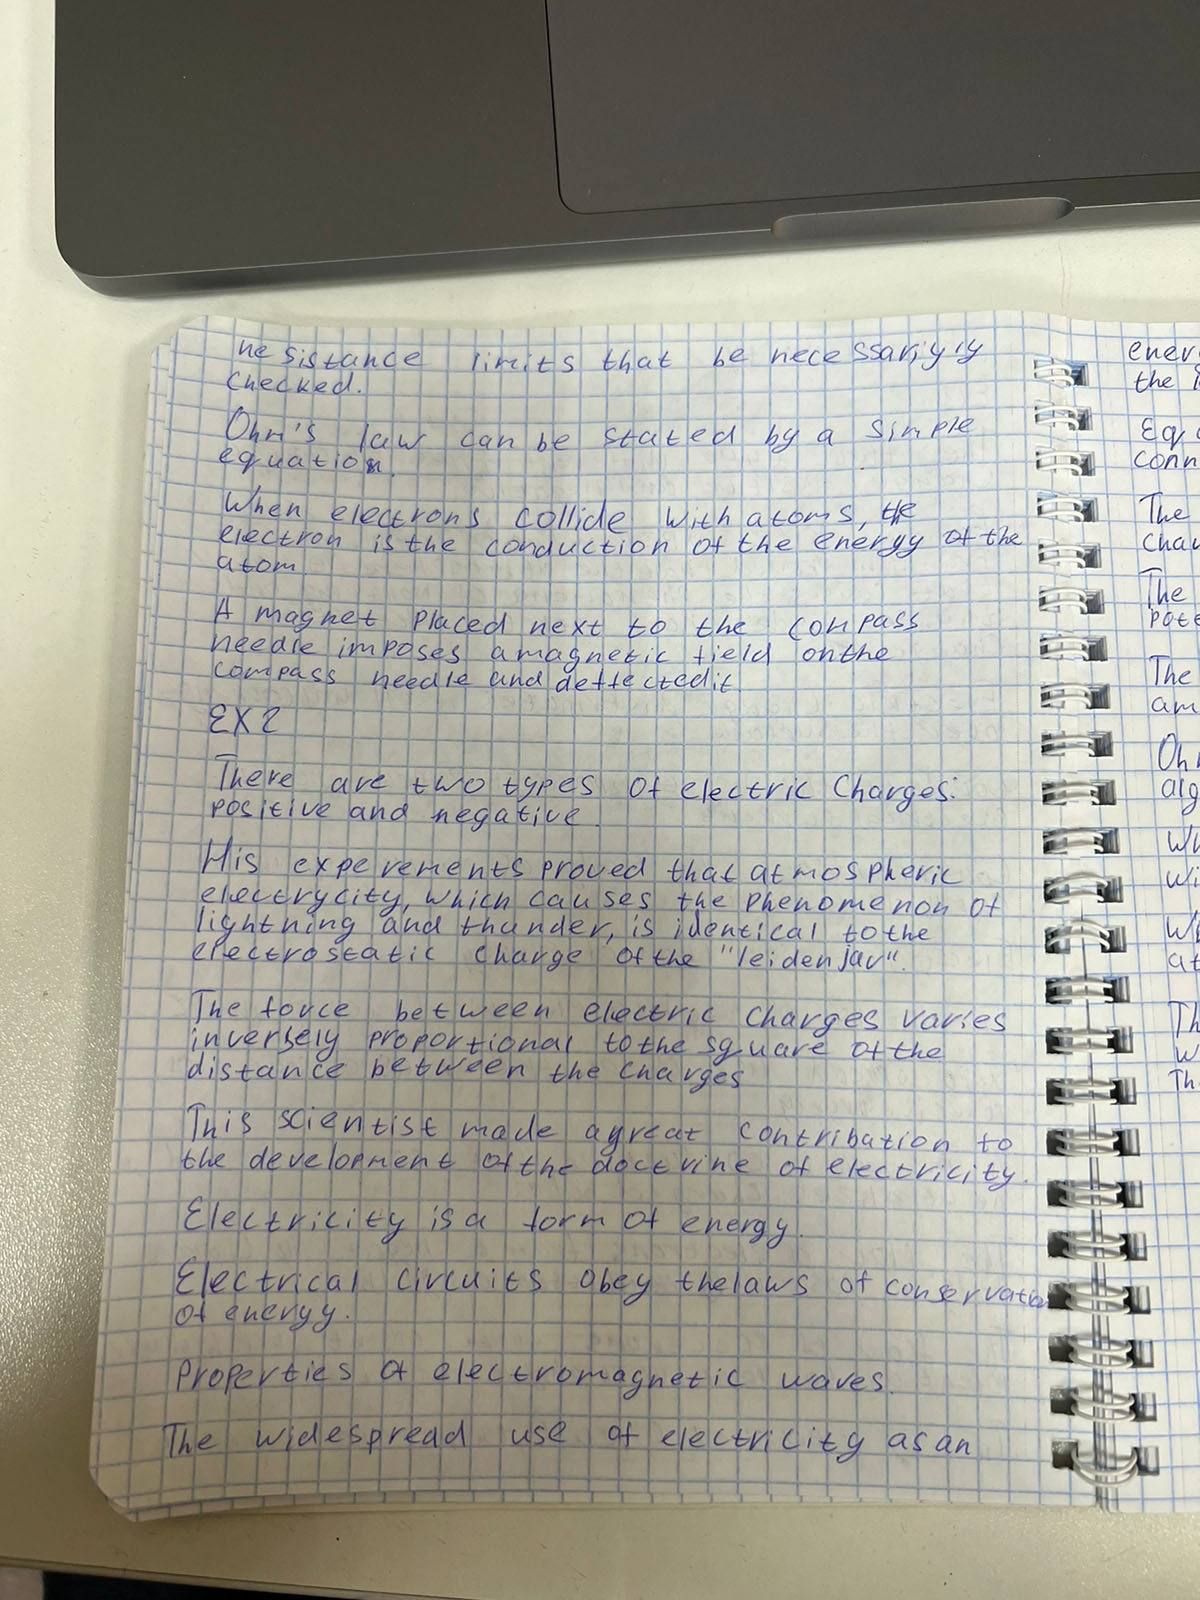 nesistance limits that be necessariyly
checked.
Ohm's law can be stated by a simple
equation.
When electrons collide with atoms, the
electron is the conduction of the energy of the
atom
A magnet placed next to the compass
needle imposes a magnetic field on the
compass needle and deflected it.
EX 2
There are two types of electric charges:
positive and negative.
His experements proved that atmospheric
electrycity, which causes the phenomenon of
lightning and thunder, is identical to the
electrostatic charge of the "leiden jar".
The force between electric charges varies
inversely proportional to the square of the
distance between the charges
This scientist made a great contribation to
the development of the doctrine of electricity.
Electricity is a form of energy.
Electrical circuits obey the laws of conservation
of energy.
Properties of electromagnetic waves.
The widespread use of electricity as an
ener
the
Eq
conn
The
chau
The
pote
The
am
Ohm
alg
Wh
wi
Wh
at
Th
w
Th